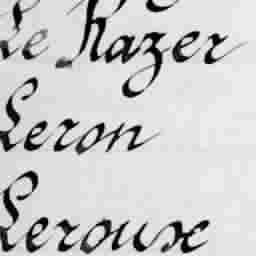 Le Razer
Leron
Leroux